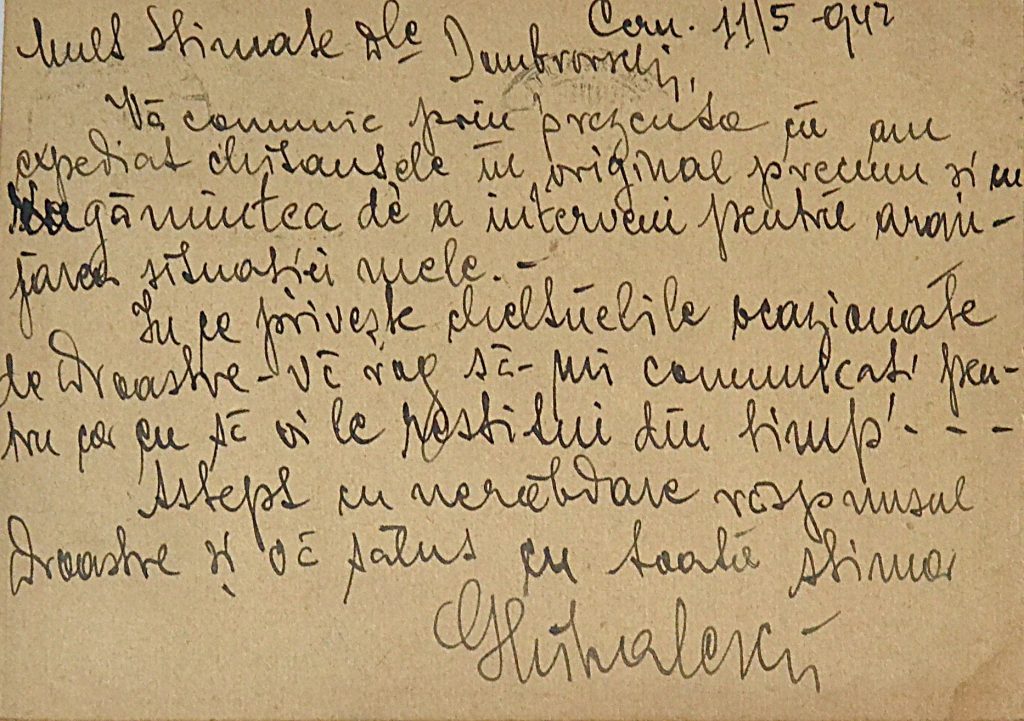 Cern. 11/5 -942
Mult Stimate Dle Dombrovschi,
Vă comunic prin prezenta că am
expediat chitanțele în original precum și cu
rugămintea de a interveni pentru aran-
jarea situației mele. -
În ce privește cheltuelile ocazionate
de Dvoastre - Vă rog să-mi comunicati pen-
tru ca eu să vi le restitui din timp - - -
Astept cu nerăbdare răspunsul
Dvoastre și Vă sălut cu toată stima